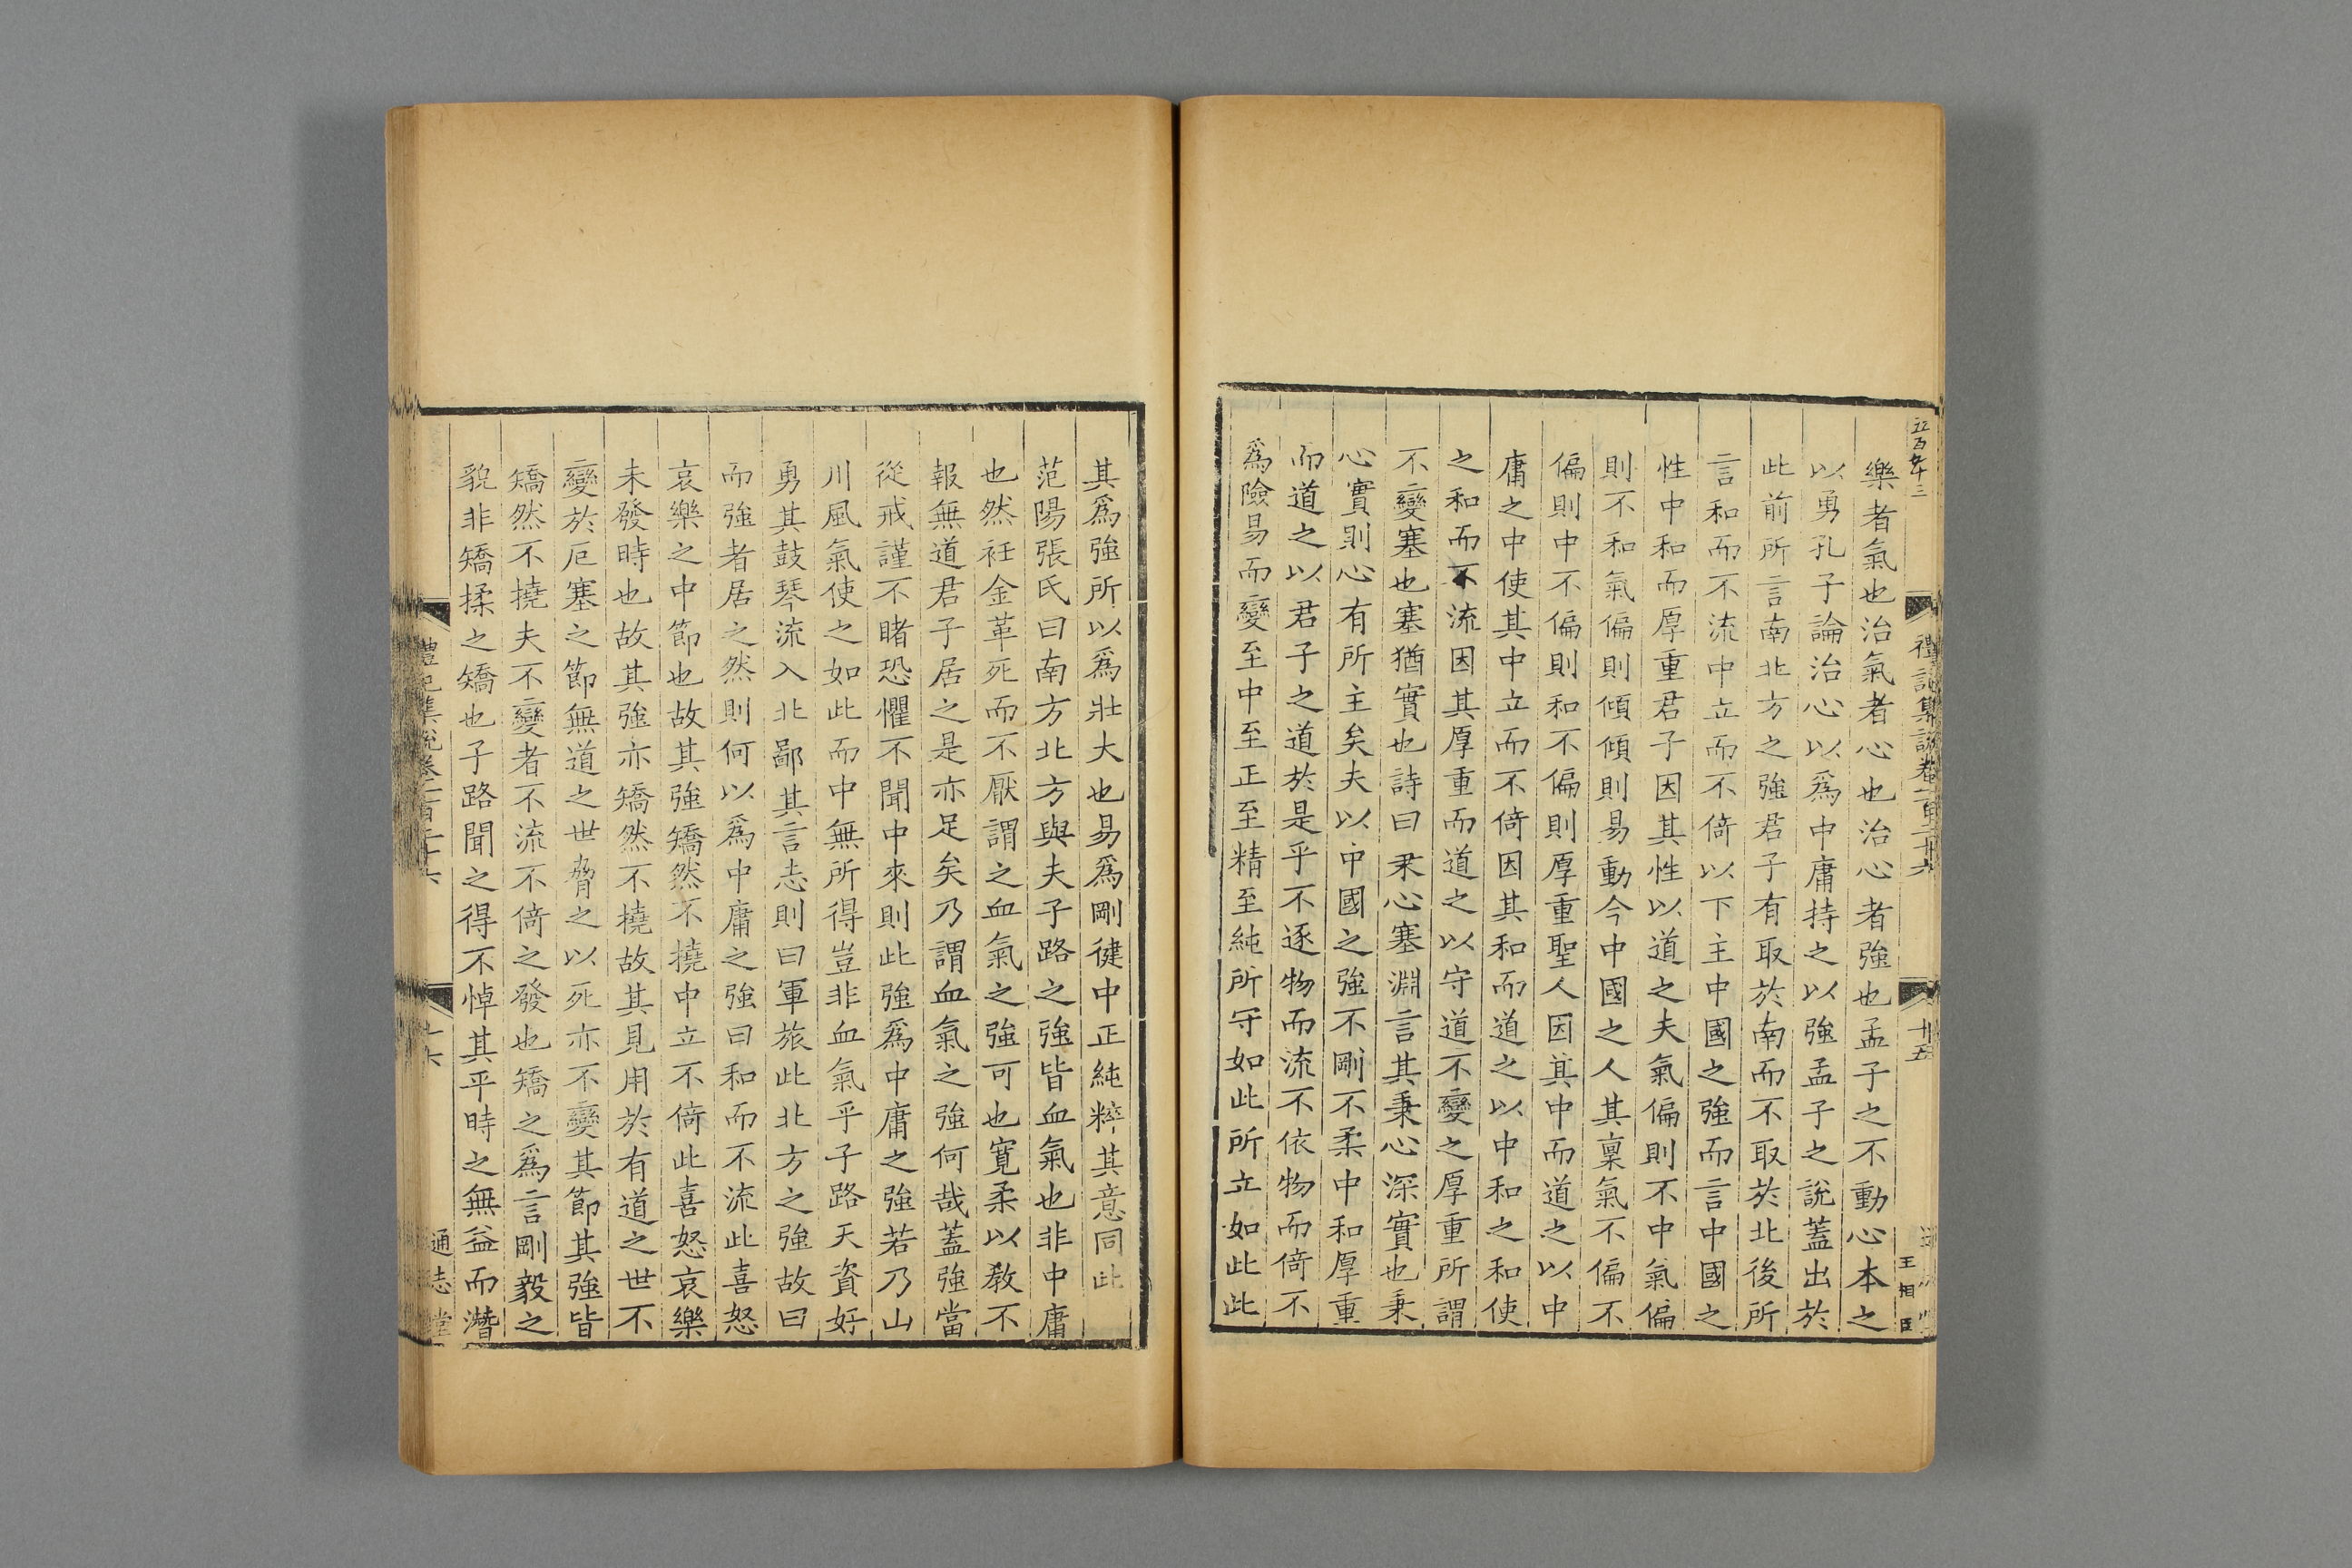 禮記集說卷一百二十六
十五
樂者氣也治氣者心也治心者強也孟子之不動心本之
以勇孔子論治心以爲中庸持之以強孟子之說蓋出於
此前所言南北方之強君子有取於南而不取於北後所
言和而不流中立而不倚以下主中國之強而言中國之
性中和而厚重君子因其性以道之夫氣偏則不中氣偏
則不和氣偏則傾傾則易動今中國之人其稟氣不偏不
偏則中不偏則和不偏則厚重聖人因其中而道之以中
庸之中使其中立而不倚因其和而道之以中和之和使
之和而不流因其厚重而道之以守道不變之厚重所謂
不變塞也塞猶實也詩曰秉心塞淵言其秉心深實也秉
心實則心有所主矣夫以中國之強不剛不柔中和厚重
而道之以君子之道於是乎不逐物而流不依物而倚不
爲險易而變至中至正至精至純所守如此所立如此此
王相臣
其爲強所以爲壯大也易爲剛健中正純粹其意同此
范陽張氏曰南方北方與夫子路之強皆血氣也非中庸
也然衽金革死而不厭謂之血氣之強可也寬柔以教不
報無道君子居之是亦足矣乃謂血氣之強何哉蓋強當
從戒謹不睹恐懼不聞中來則此強爲中庸之強若乃山
川風氣使之如此而中無所得豈非血氣乎子路天資好
勇其鼓琴流入北鄙其言志則曰軍旅此北方之強故曰
而強者居之然則何以爲中庸之強曰和而不流此喜怒
哀樂之中節也故其強矯然不撓中立不倚此喜怒哀樂
未發時也故其強亦矯然不撓故其見用於有道之世不
變於厄塞之節無道之世脅之以死亦不變其節其強皆
矯然不撓夫不變者不流不倚之發也矯之爲言剛毅之
貌非矯揉之矯也子路聞之得不悼其平時之無益而潛
禮記集說卷一百二十六
十六
通志堂